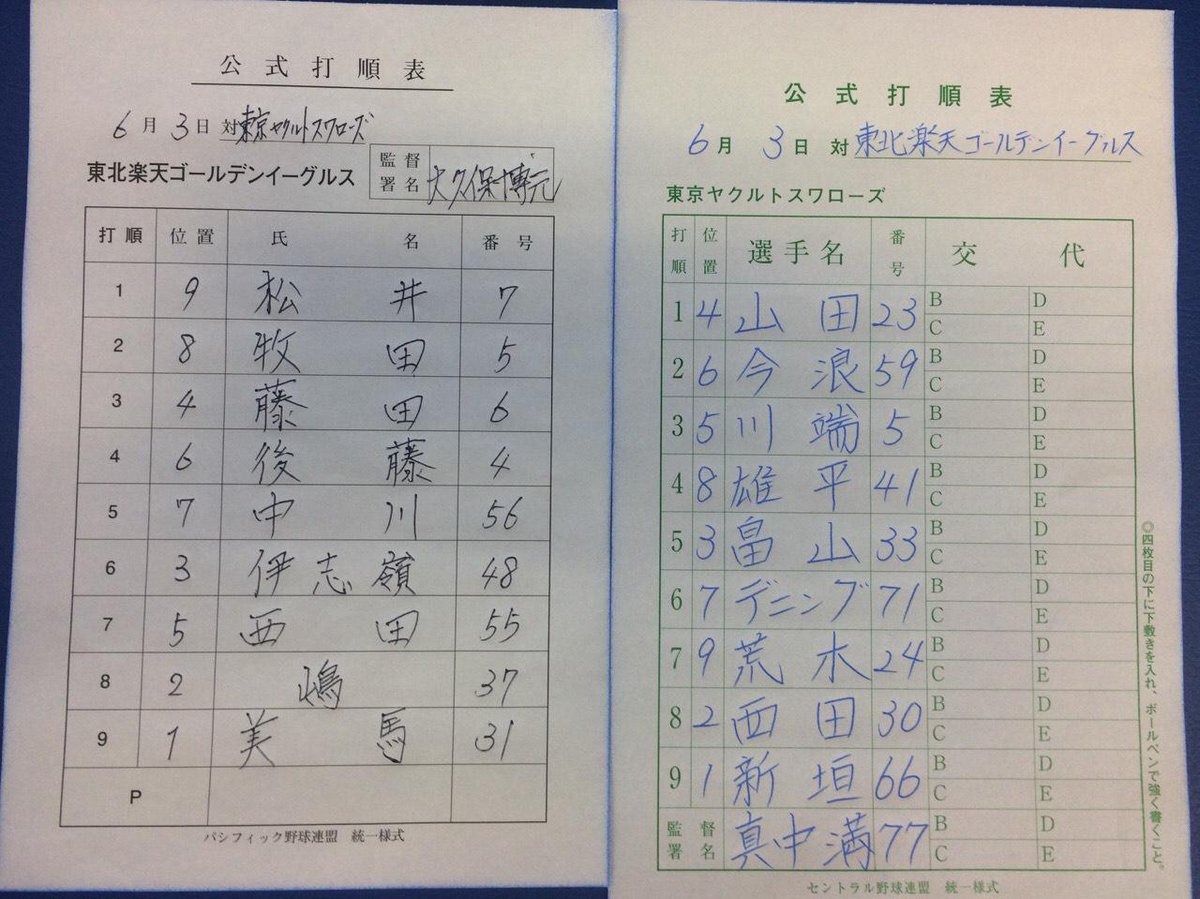 公式打順表
6月3日 対東京ヤクルトスワローズ
東北楽天ゴールデンイーグルス 監督署名 大久保博元
打順 位置 氏名 番号
1 9 松井 7
2 8 牧田 5
3 4 藤田 6
4 6 後藤 4
5 7 中川 56
6 3 伊志嶺 48
7 5 西田 55
8 2 嶋 37
9 1 美馬 31
P
パシフィック野球連盟 統一様式
公式打順表
6月3日 対東北楽天ゴールデンイーグルス
東京ヤクルトスワローズ
打順 位置 選手名 番号 交代
1 4 山田 23 B D
C E
2 6 今浪 59 B D
C E
3 5 川端 5 B D
C E
4 8 雄平 41 B D
C E
5 3 畠山 33 B D
C E
6 7 デニング 71 B D
C E
7 9 荒木 24 B D
C E
8 2 西田 30 B D
C E
9 1 新垣 66 B D
C E
監督署名 真中満 77 B D
C E
◎四枚目の下に下敷きを入れ、ボールペンで強く書くこと。
セントラル野球連盟 統一様式